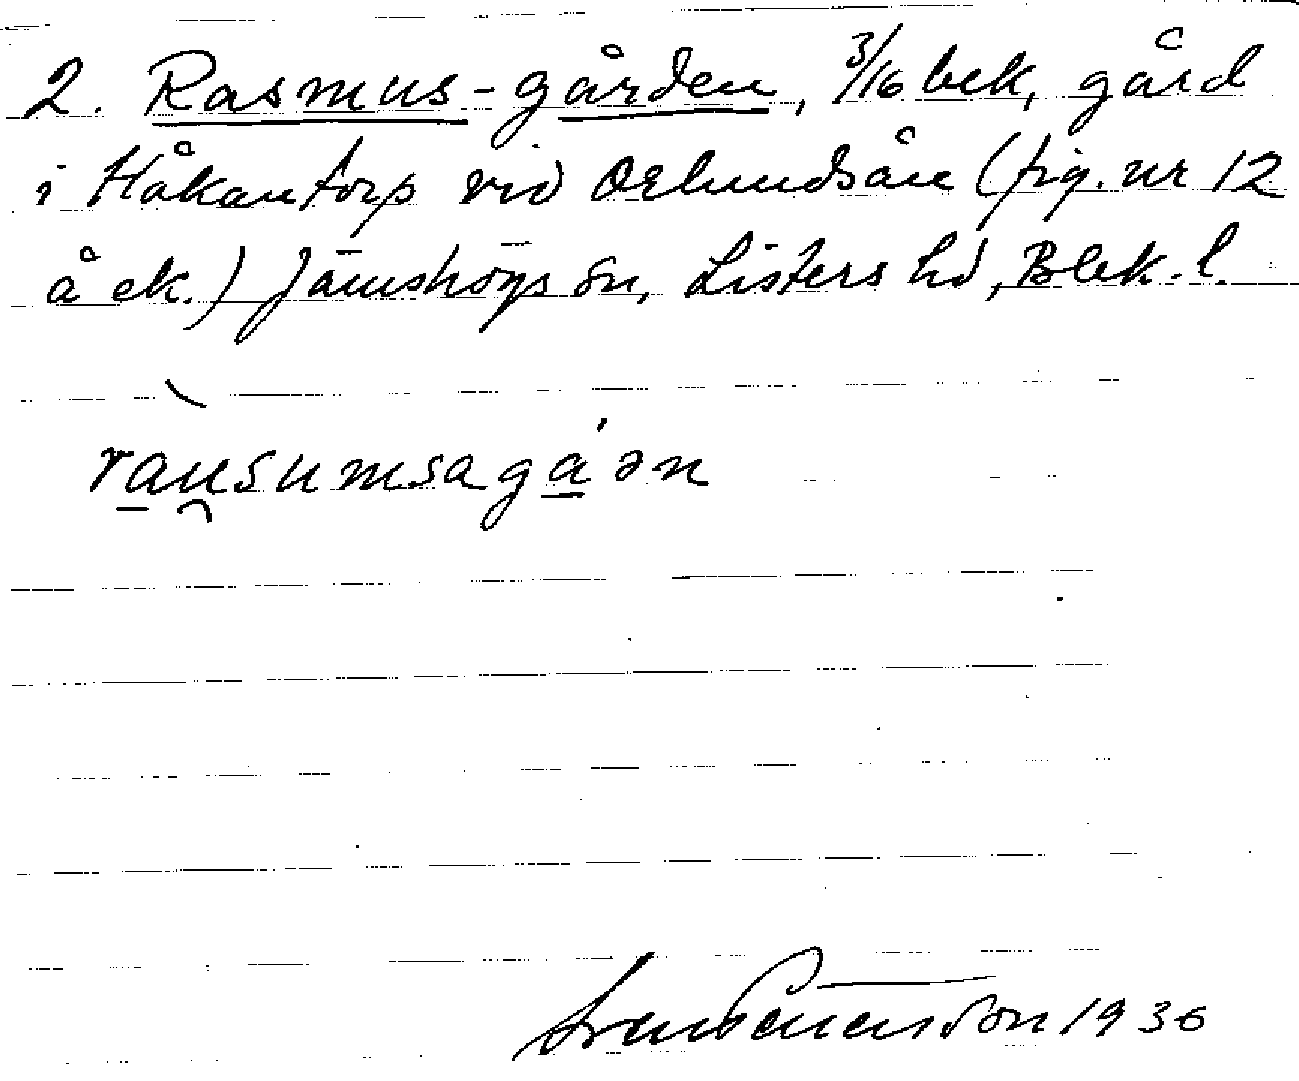 2. Rasmus-gården, 3/16 bek, gård
i Håkantorp vid Orlundsån (fig. nr 12
å ek.) Jämshögs sn, Listers hd, Blek. l.
ràu̯sumsagá ən
1936